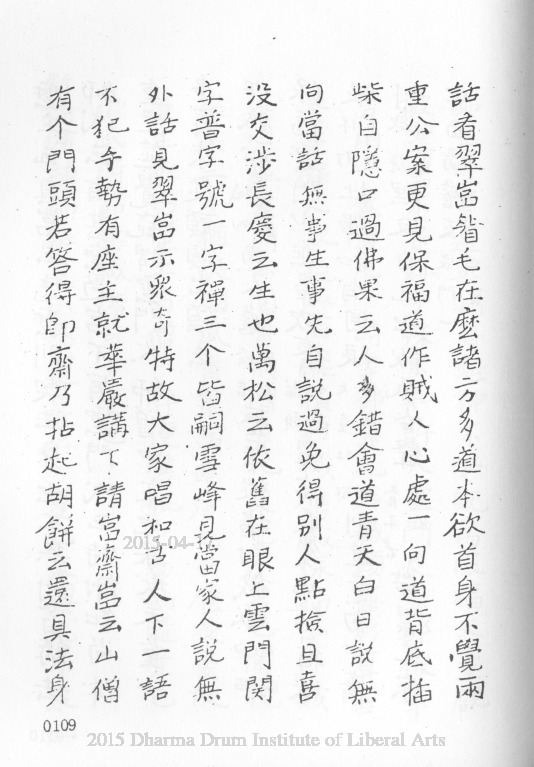 話看翠嵓眉毛在麽諸方多道本欲首身不覺兩
重公案更見保福道作賊人心處一向道背底插
柴自隱口過佛果云人多錯會道青天白日說無
向當話無事生事先自說過免得別人點撿且喜
没交涉長慶云生也萬松云依舊在眼上雲門関
字普字號一字禪三个皆嗣雪峰見當家人說無
外話見翠嵓示衆奇特故大家唱和古人下一語
不犯手勢有座主就華嚴講了請嵓齋嵓云山僧
有个門頭若答得即齋乃拈起胡餅云還具法身
0109
2015-04-
2015 Dharma Drum Institute of Liberal Arts